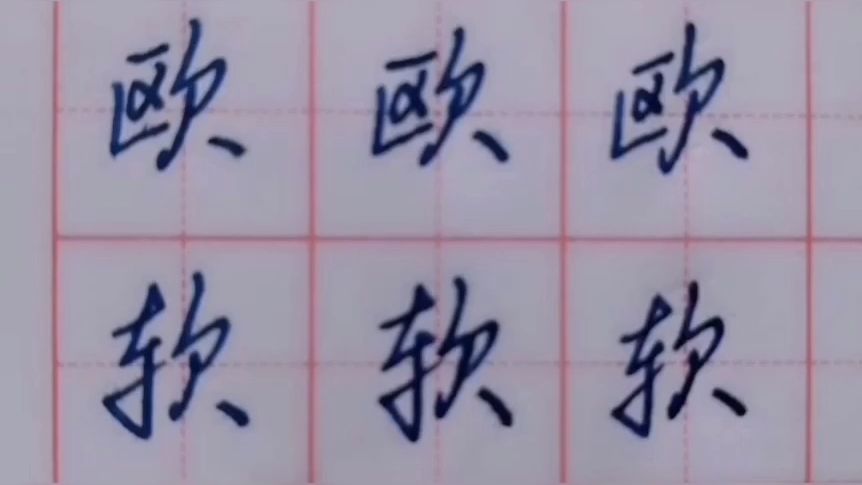 欧欧欧
软软软